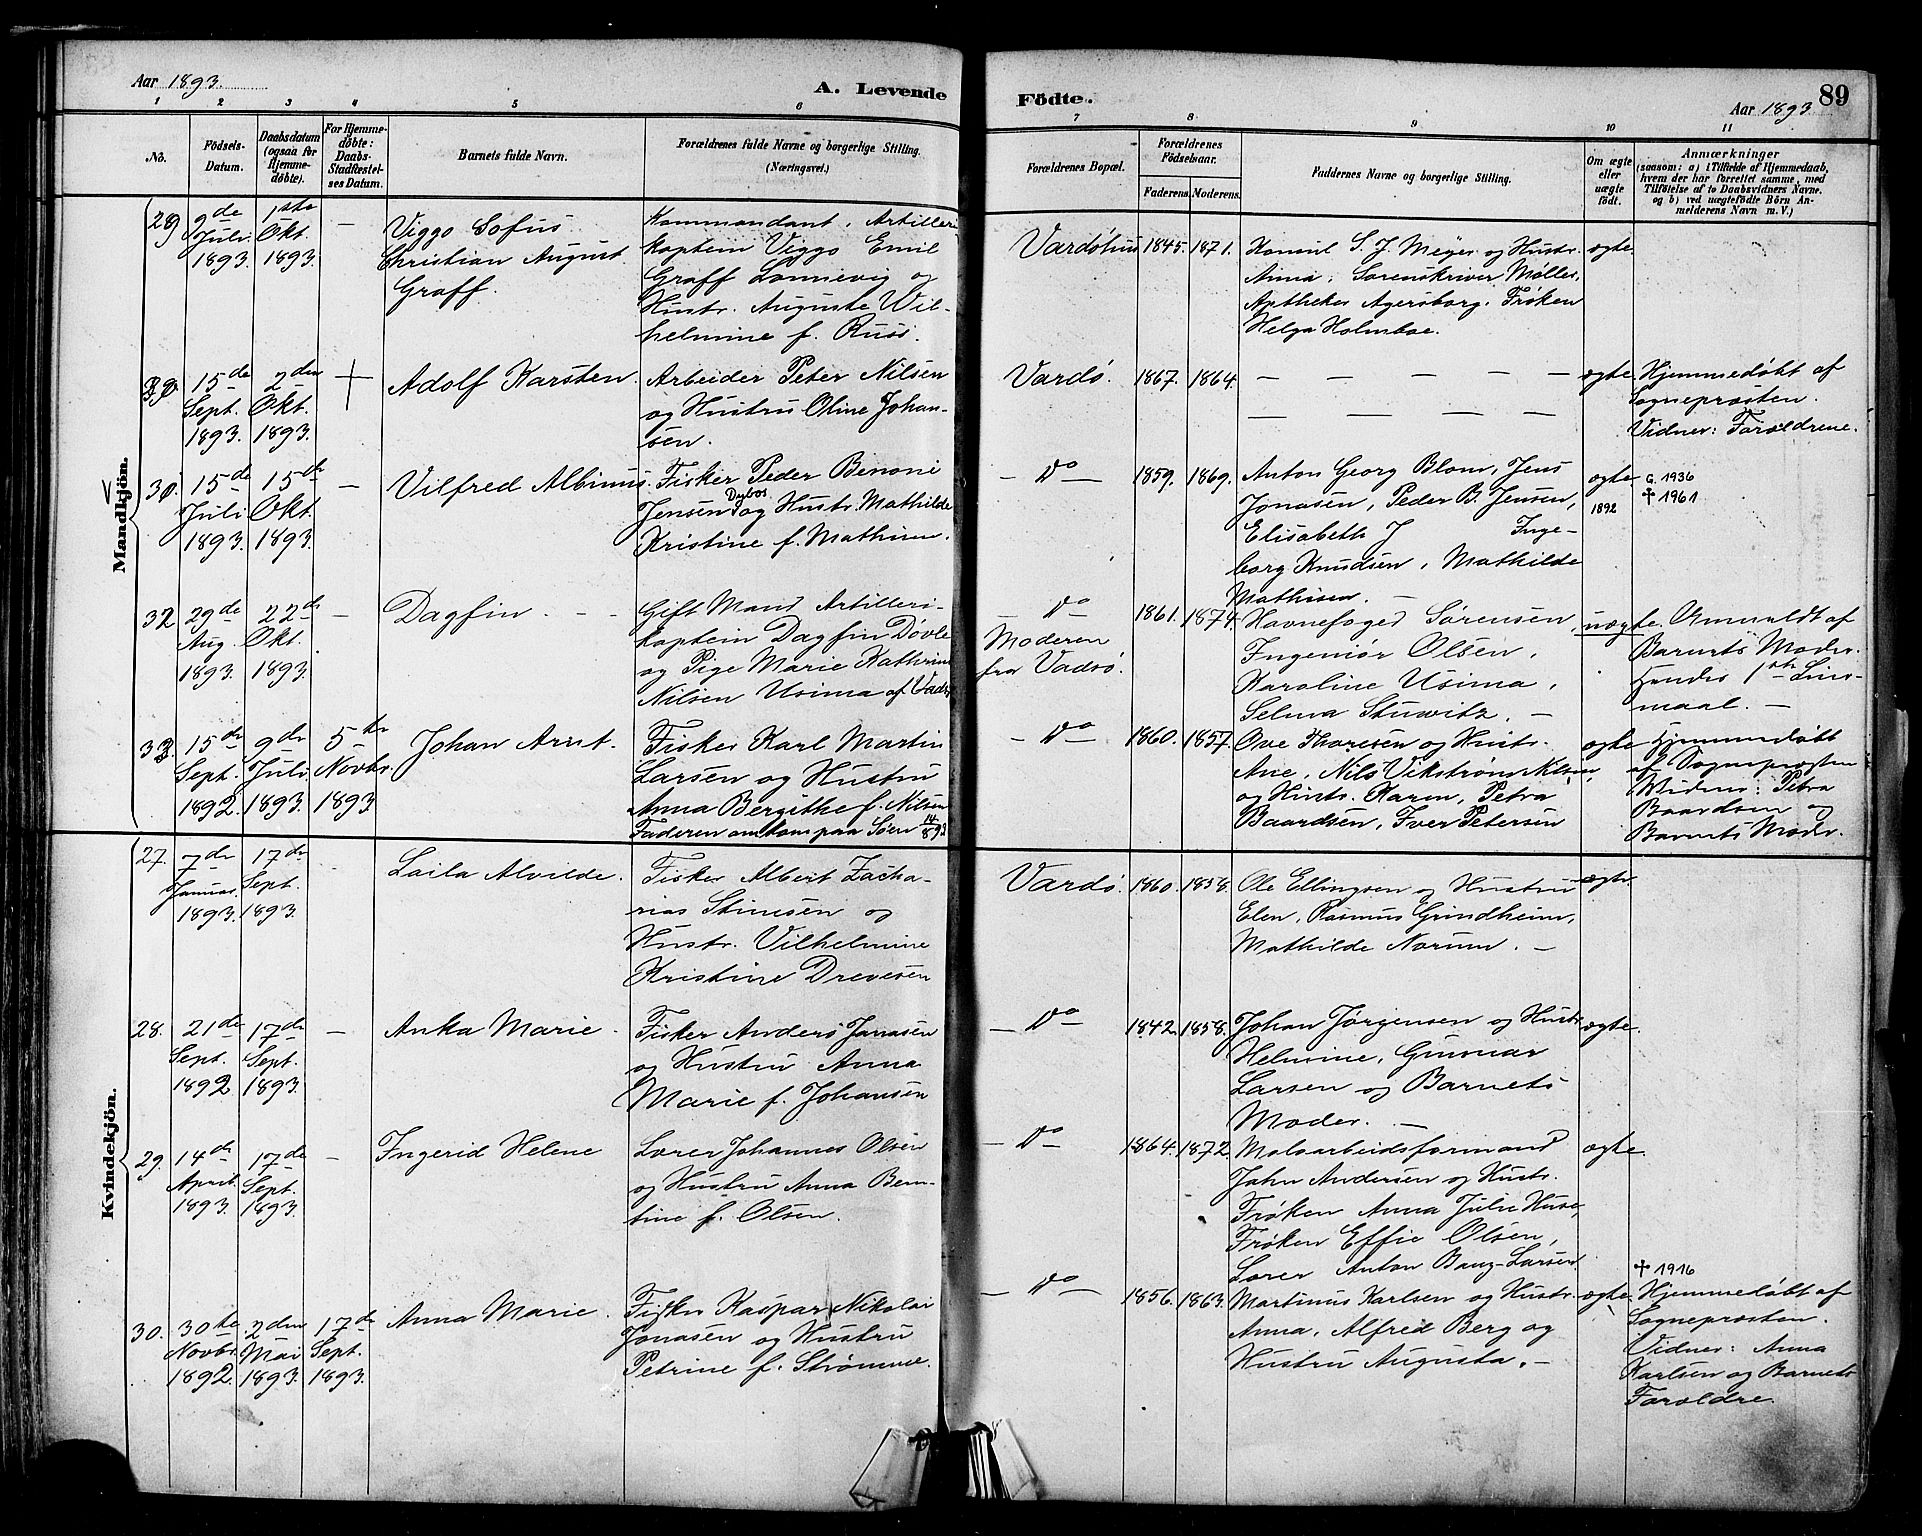 Aar 1893.
A. Levende
Födte.
Aar 1893.
89
1 2 3 4 5 6
7 8 9 10 11
No.
Födsels-
Datum.
Daabsdatum
(ogsaa for
Hjemme-
döbte).
For Hjemme-
döbte:
Daabs-
Stadfæstel-
ses Datum.
Barnets fulde Navn.
Forældrenes fulde Navne og borgerlige Stilling.
(Næringsvei.)
Forældrenes Bopæl.
Forældrenes
Födselsaar.
Faderens.
Moderens.
Faddernes Navne og borgerlige Stilling.
Om ægte
eller
uægte
födt.
Anmærkninger
(saasom: a) i Tilfælde af Hjemmedaab,
hvem der har forrettet samme, med
Tilföielse af to Daabsvidners Navne.
og b) ved uægtefödte Börn An-
melderens Navn m. V.)
Mandkjön.
29
9de
Juli
1893.
1ste
Okt.
1893.
—
Viggo Sofus
Christian August
Graff.
Kommandant, Artilleri
kaptein Viggo Emil
Graff Lonnevig og
Hustr. Auguste Wil-
helmine f. Russ.
Vardøhus
1845.
1871.
Konsul S. J. Meyer og Hustr.
Anna, Sorenskriver Møller,
Apotheker Agersborg, Frøken
Helga Holmboe.
ægte.
15de
Sept.
1893.
2den
Okt.
1893.
+
Adolf Karsten.
Arbeider Peter Nilsen
og Hustru Oline Johan-
sen.
Vardø.
1867.
1864.
— — — — —
— — — —
ægte.
Hjemmedøbt af
Sogneprøsten.
Vidner: Forældrene.
15de
Juli
1893.
15de
Okt.
1893.
—
Vilfred Albinus.
Fisker Peder Benoni
Dybos
Jensen og Hustr. Mathilde
Kristine f. Mathisen.
— Do —
1859.
1869.
Anton Georg Blom, Jens
Jonasen, Peder B. Jensen,
Elisabeth J Inge-
borg Knudsen, Mathilde
Mathisen. —
ægte
1892
G. 1936
✝ 1961
32
29de
Aug.
1893.
22de
Okt.
1893.
—
Dagfin. —
Gift Mand Artilleri-
kaptein Dagfin Døvle
og Pige Marie Kathrine
Nilsen Usima af Vadsø
— Do —
Moderen
fra Vadsø.
1861.
1874.
Havnefoged Sørensen,
Ingeniør Olsen,
Karoline Usima,
Selma Stuwitz. —
uægte.
Anmeldt af
Barnets Moder.
Hendes 1ste Leier-
maal. —
33
15de
Sept.
1892.
9de
Juli
1893.
5te
Novbr.
1893
Johan Arnt.
Fisker Karl Martin
Larsen og Hustru
Anna Bergithe f. Nilsen
Faderen omkom paa Søen 14/8 93
— Do —
1860.
1857.
Ove Thoresen og Hustr.
Ane, Nils Vikstrøm Nilsen,
og Hustr. Karen, Petra
Baardsen, Iver Petersen
ægte
Hjemmedøbt
af Sogneprøsten
Vidner: Petra
Baardsen og
Barnets Moder.
Kvindekjön.
27.
7de
Januar.
1893.
17de
Sept.
1893.
Laila Alvilde.
Fisker Albert Zacha-
rias Stinesen og
Hustr. Vilhelmine
Kristine Drevesen
Vardø.
1860.
1858.
Ole Ellingsen og Hustru
Elen, Rasmus Grindheim,
Mathilde Norum. —
ægte.
28.
21de
Sept.
1892
17de
Sept.
1893.
—
Anka Marie.
Fisker Anders Jonasen
og Hustru Anna
Marie f. Johansen
— Do —
1842.
1858.
Johan Jørgensen og Hustr.
Helmine, Gunnar
Larsen og Barnets
Moder. —
ægte.
29.
14de
April
1893.
17de
Sept.
1893.
—
Ingerid Helene
Lærer Johannes Olsen
og Hustru Anna Ben-
tine f. Olsen.
— Do —
1864.
1872
Moloarbeidsformand
John Andersen og Hustr.
Frøken Anna Julie Huse,
Frøken Effie Olsen,
Lærer Anton Bang-Larsen
ægte.
30.
30te
Novbr.
1892.
2den
Mai
1893.
17de
Sept.
1893.
Anna Marie.
Fisker Kaspar Nikolai
Jonasen og Hustru
Petrine f. Strømme.
— Do —
1856.
1863.
Martinus Karlsen og Hustr.
Anna, Alfred Berg og
Hustru Augusta. —
ægte.
✝ 1916
Hjemmedøbt af
Sogneprøsten.
Vidner: Anna
Karlsen og Barnets
Forældre.